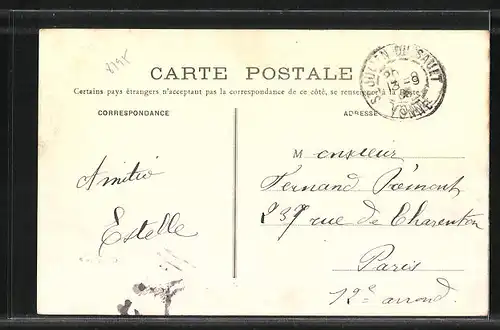 CARTE POSTALE
Certains pays étrangers n'acceptant pas la correspondance de ce côté, se renseigner à la Poste
CORRESPONDANCE
ADRESSE
ST JULIEN DU SAULT
YONNE
Amitié
Estelle
Monsieur
Fernand
237 rue de Charenton
Paris
12e arrond.